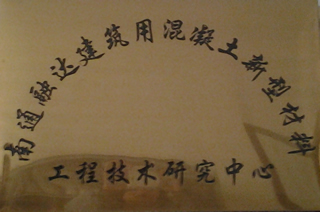 南通融达建筑用混凝土新型材料
工程技术研究中心